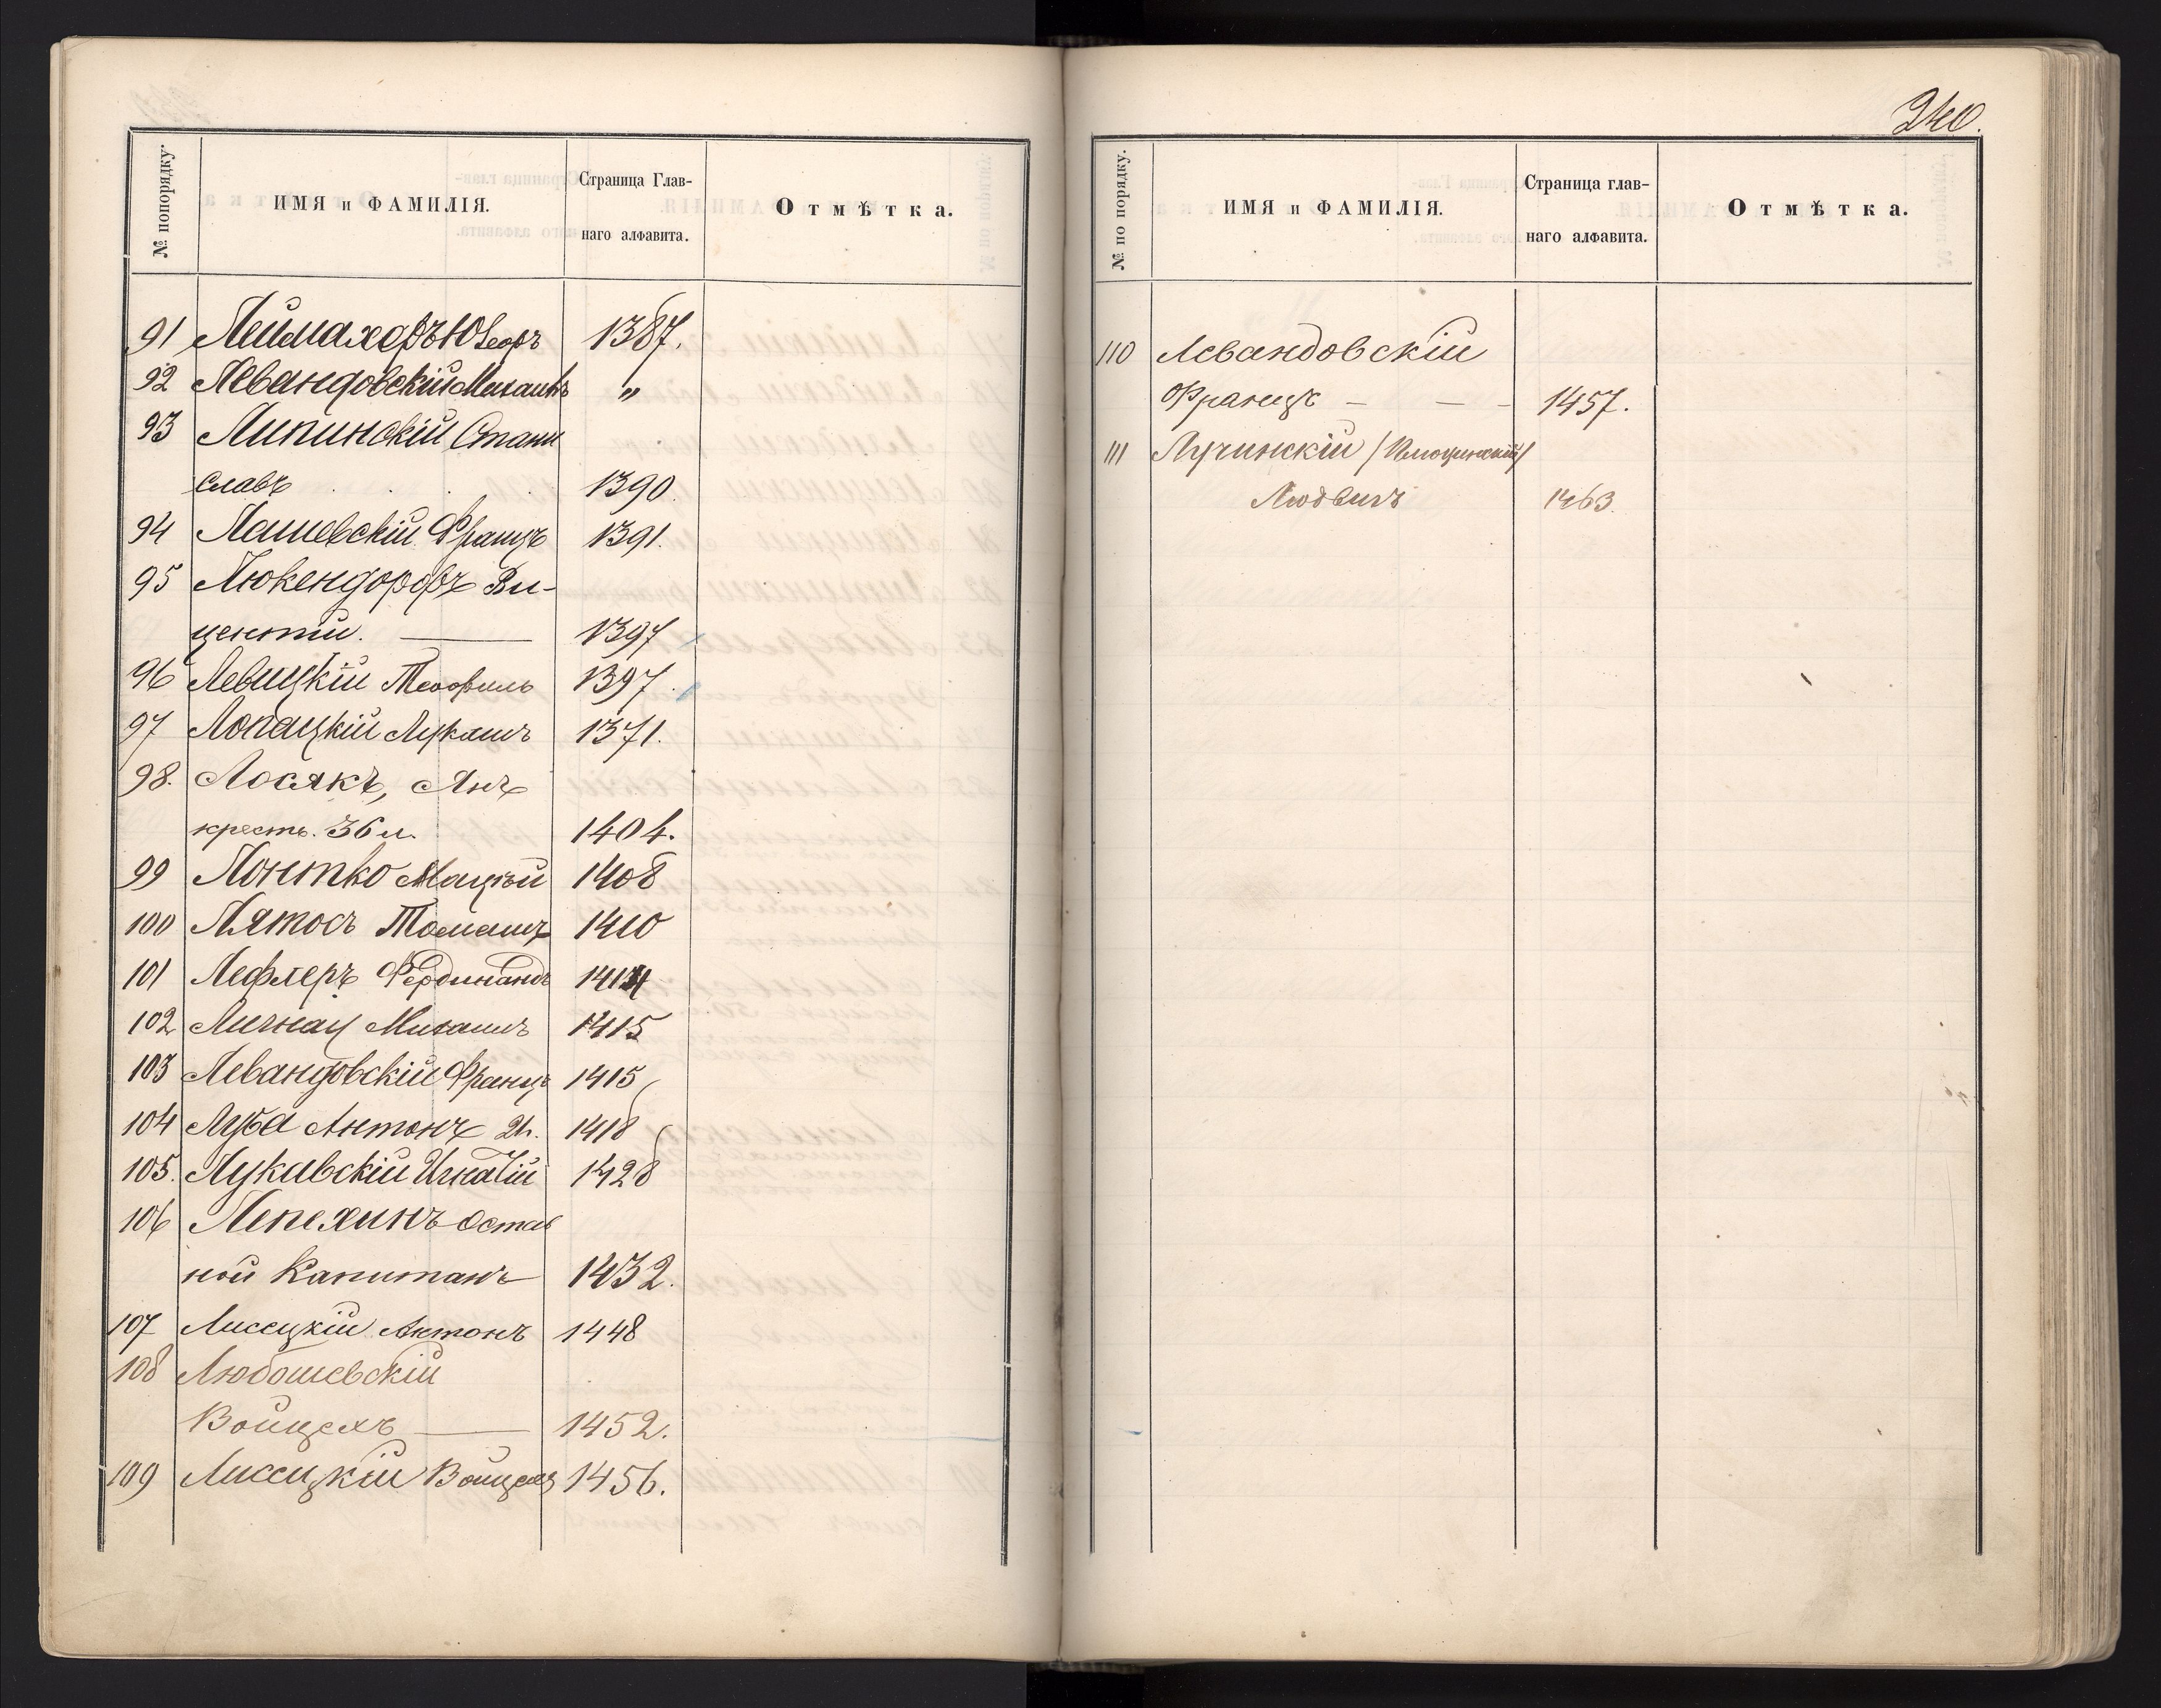 № попорядку.
ИМЯ и ФАМИЛІЯ.
Страница Глав-
наго алфавита.
Отмѣтка.
91 Леймахеръ Юзефъ 1387.
92 Левандовскій Михаилъ "
93 Липинскій Стани
славъ 1390.
94 Лашевскій Францъ 1391.
95 Люкендорфъ Ви-
центій. 1397
96 Левицкій Теофиль 1397.
97 Лопацкій Лукашъ 1371.
98. Лосякъ, Янъ
кресть. 36 л. 1404.
99 Лонтко Мацѣй 1408
100 Лятосъ Томашъ 1410
101 Лефлеръ Фердинандъ 1414
102 Личнац Михаилъ 1415
103 Левандовскій Францъ 1415
104 Луба Антонъ 1418
105. Лукавскій Игнатій 1428
106 Лепехинъ остав
ной Капитанъ 1432.
107 Лисецкій Антонъ 1448
108 Любошевскій
Войцехъ 1452.
109 Лисецкій Войцехъ 1456.
240.
№ по порядку.
ИМЯ и ФАМИЛІЯ.
Страница глав-
наго алфавита.
Отмѣтка.
110 Левандовскій
Францъ — — - 1457.
111 Лучинскій
Людвигъ 1463.